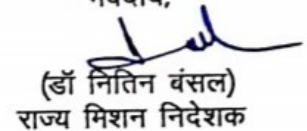 (डॉ नितिन बंसल)
राज्य मिशन निदेशक